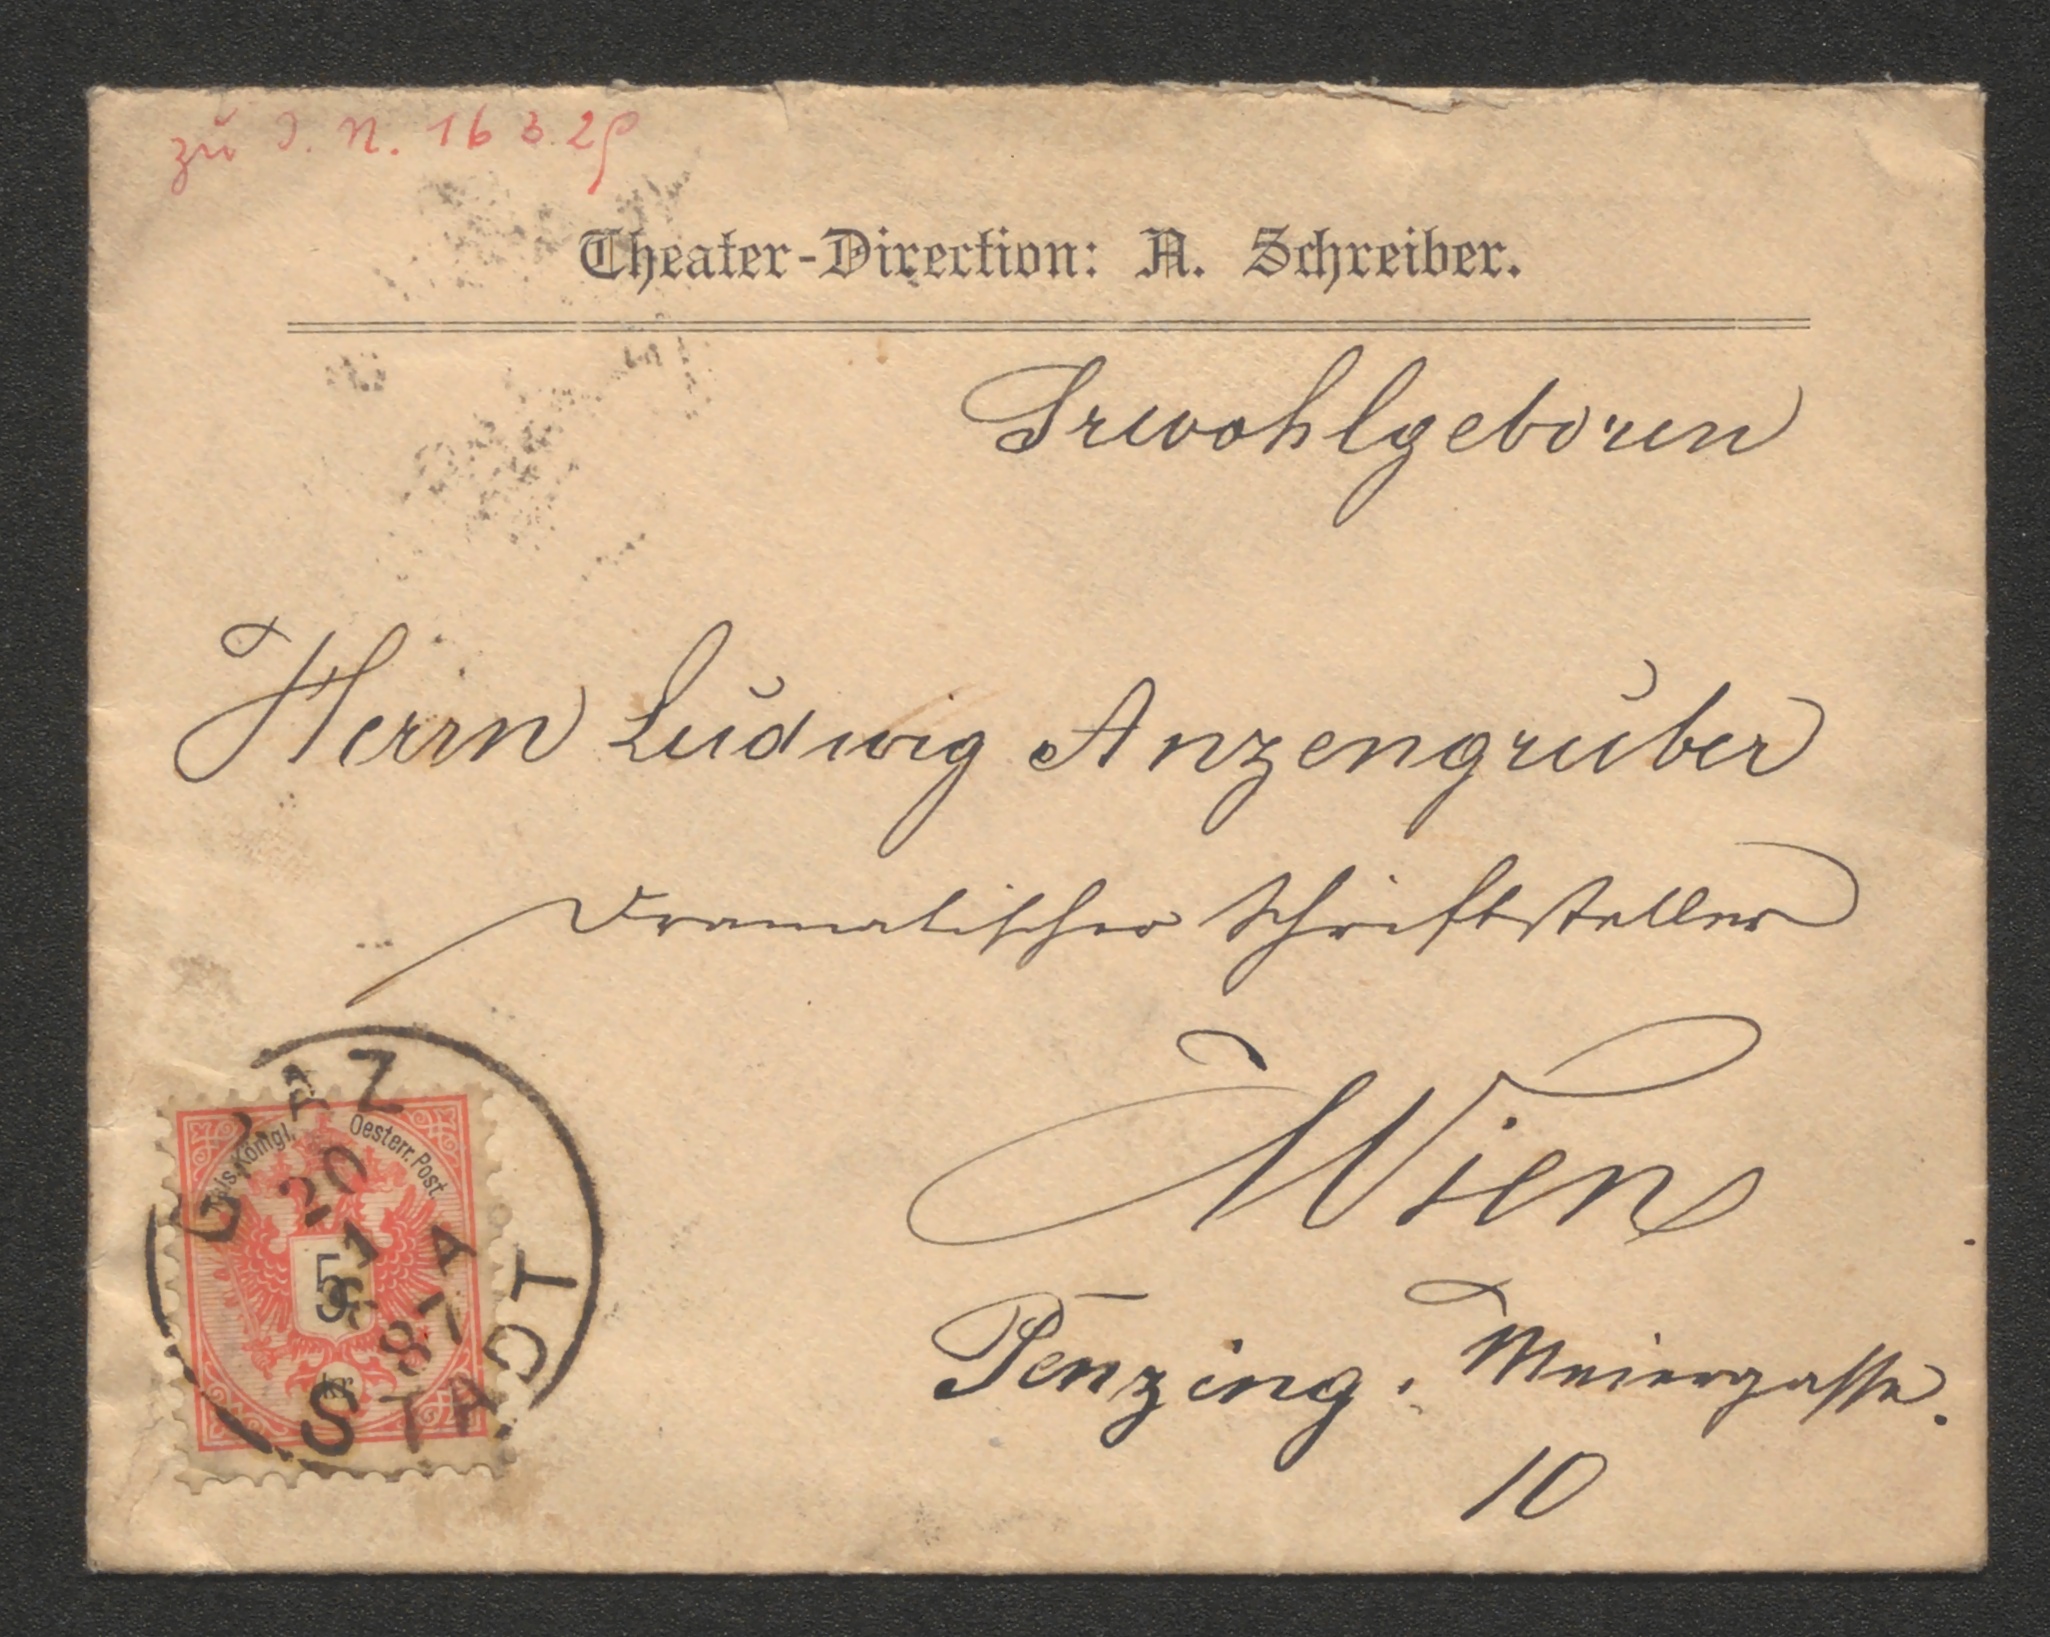 zu I. N. 16329
Theater-Direction: A. Schreiber.
Srwohlgeboren
Herrn Ludwig Anzengruber
Dramatischer Schriftsteller
Wien
Penzing. Meiergasse.
10
GRAZ STADT
20
1 A
87
Kais. Königl. Oesterr. Post.
5
kr.